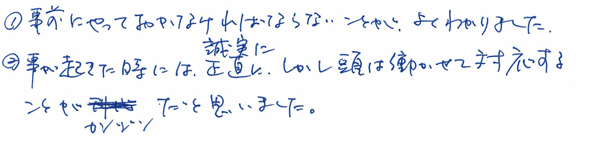 ①事前にやっておかなければならないことが、よくわかりました。
誠実に
②事が起きた時には、正直に、しかし頭は働かせて対応する
ことが だと思いました。
カンジン